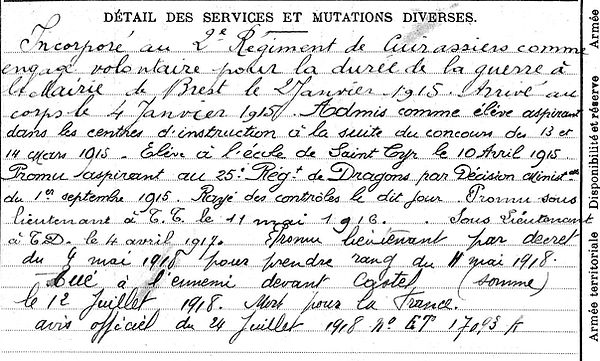 DÉTAIL DES SERVICES ET MUTATIONS DIVERSES.
Incorporé au 2e Régiment de Cuirassiers comme
engagé volontaire pour la durée de la guerre à
la Mairie de Brest le 2 Janvier 1915. Arrivé au
corps le 4 Janvier 1915. Admis comme élève aspirant
dans les centres d'instruction à la suite du concours des 13 et
14 Mars 1915. Elève à l'école de Saint Cyr le 10 Avril 1915.
Promu aspirant au 25e Régt de Dragons par Décision Ministelle
du 1er septembre 1915. Rayé des contrôles le dit jour. Promu sous
lieutenant à T.T. le 11 mai 1916. Sous Lieutenant
à T.D. le 4 avril 1917. Promu lieutenant par decret
du 9 mai 1918 pour prendre rang du 11 mai 1918.
Tué à l'ennemi devant Castel (Somme)
le 12 Juillet 1918. Mort pour la France.
avis officiel du 24 Juillet 1918 No ET 17093 K
Armée territoriale
Disponibilité et réserve
Armée